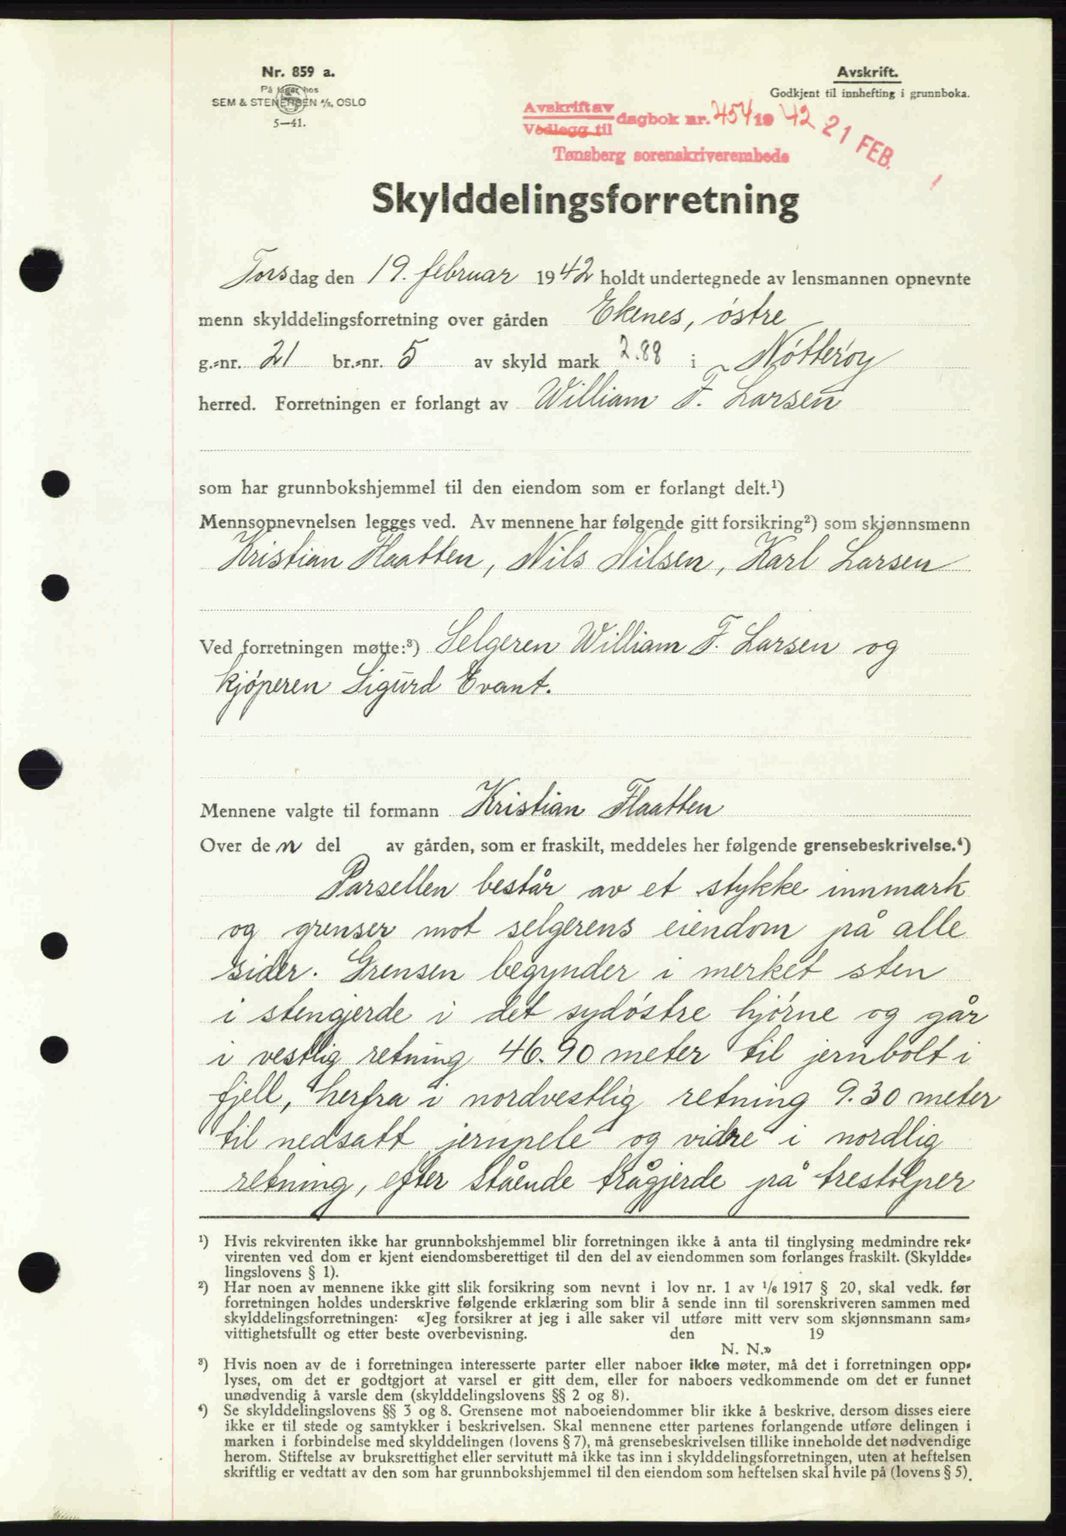 Nr. 859 a.
På lager hos
SEM & STENERSEN A/S, OSLO
5—41.
Avskrift.
Godkjent til innhefting i grunnboka.
Avskrift av
Vedlegg til dagbok nr. 454 19 42 21 FEB.
Tønsberg sorenskriverembede
Skylddelingsforretning
Torsdag den 19. februar 1942 holdt undertegnede av lensmannen opnevnte
menn skylddelingsforretning over gården Ekenes, østre
g.-nr. 21 br.-nr. 5 av skyld mark 2.88 i Nøtterøy
herred. Forretningen er forlangt av William F. Larsen
som har grunnbokshjemmel til den eiendom som er forlangt delt.¹)
Mennsopnevnelsen legges ved. Av mennene har følgende gitt forsikring²) som skjønnsmenn
Kristian Flaatten, Nils Nilsen, Karl Larsen
Ved forretningen møtte:³) Selgeren William F. Larsen og
kjøperen Sigurd Evant.
Mennene valgte til formann Kristian Flaatten
Over den del av gården, som er fraskilt, meddeles her følgende grensebeskrivelse.⁴)
Parsellen består av et stykke innmark
og grenser mot selgerens eiendom på alle
sider. Grensen begynder i merket sten
i stengjerde i det sydøstre hjørne og går
i vestlig retning 46.90 meter til jernbolt i
fjell, herfra i nordvestlig retning 9.30 meter
til nedsatt jernpele og vidre i nordlig
retning, efter stående trågjerde på trestolper
¹) Hvis rekvirenten ikke har grunnbokshjemmel blir forretningen ikke å anta til tinglysing medmindre rek-
virenten ved dom er kjent eiendomsberettiget til den del av eiendommen som forlanges fraskilt. (Skyldde-
lingslovens § 1).
²) Har noen av mennene ikke gitt slik forsikring som nevnt i lov nr. 1 av 1/6 1917 § 20, skal vedk. før
forretningen holdes underskrive følgende erklæring som blir å sende inn til sorenskriveren sammen med
skylddelingsforretningen: «Jeg forsikrer at jeg i alle saker vil utføre mitt verv som skjønnsmann sam-
vittighetsfullt og etter beste overbevisning. den 19
N. N.»
³) Hvis noen av de i forretningen interesserte parter eller naboer ikke møter, må det i forretningen opp-
lyses, om det er godtgjort at varsel er gitt dem, eller for naboers vedkommende om det er funnet
unødvendig å varsle dem (skylddelingslovens §§ 2 og 8).
⁴) Se skylddelingslovens §§ 3 og 8. Grensene mot naboeiendommer blir ikke å beskrive, dersom disses eiere
ikke er til stede og samtykker i beskrivelsen. Skal mennene etter partenes forlangende utføre delingen i
marken i forbindelse med skylddelingen (lovens § 7), må grensebeskrivelsen tillike inneholde det nødvendige
herom. Stiftelse av bruksrettighet eller servitutt må ikke tas inn i skylddelingsforretningen, uten at heftelsen
skriftlig er vedtatt av den som har grunnbokshjemmel til den eiendom som heftelsen skal hvile på (lovens § 5).